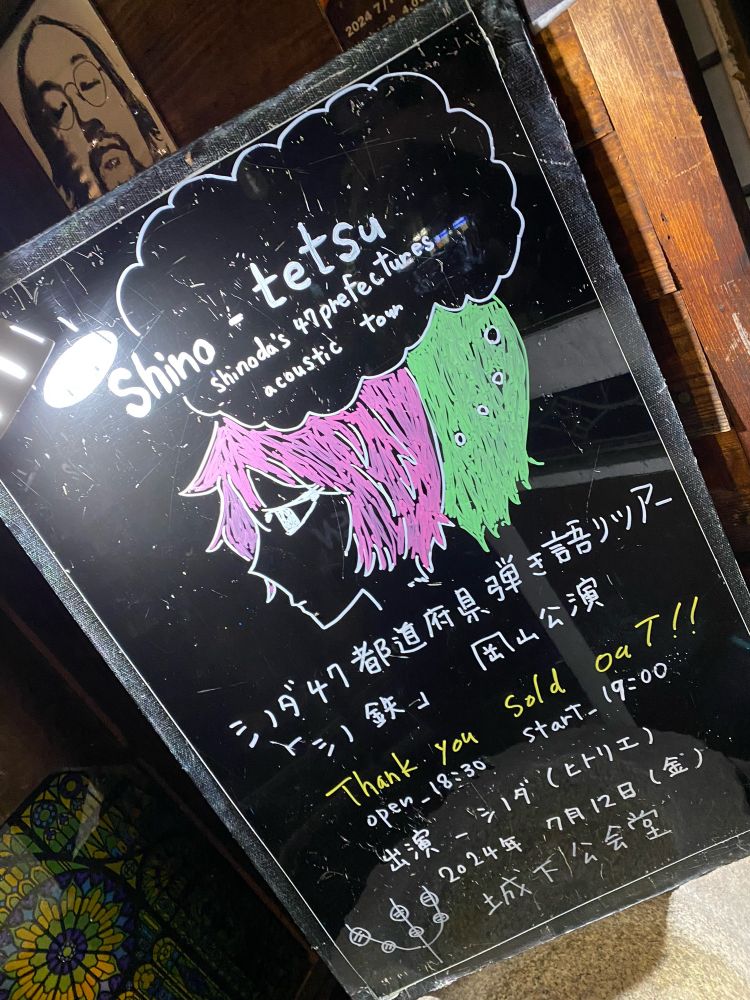 2024 7/1
shino-tetsu
shinoda's 47 prefectures
acoustic tour
シノダ47都道府県弾き語リツアー
「シノ鉄」 岡山公演
Thank you Sold ouT!!
open_18:30 start_19:00
出演-シノダ(ヒトリエ)
2024年 7月12日(金)
城下公会堂